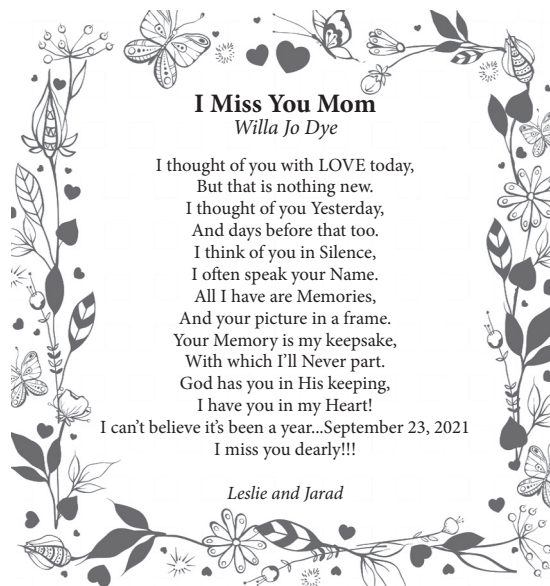 I Miss You Mom
Willa Jo Dye
I thought of you with LOVE today,
But that is nothing new.
I thought of you Yesterday,
And days before that too.
I think of you in Silence,
I often speak your Name.
All I have are Memories,
And your picture in a frame.
Your Memory is my keepsake,
With which I’ll Never part.
God has you in His keeping,
I have you in my Heart!
I can’t believe it’s been a year...September 23, 2021
I miss you dearly!!!
Leslie and Jarad